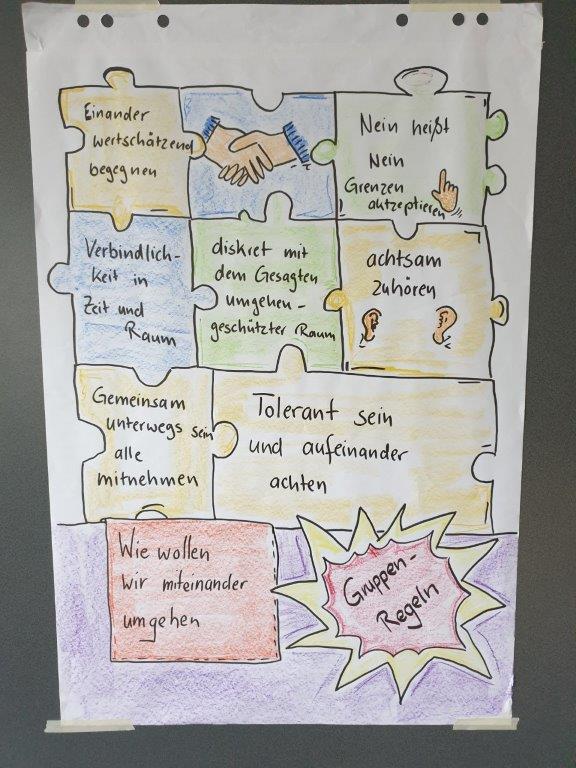 Einander
wertschätzend
begegnen
Nein heißt
Nein
Grenzen
aktzeptieren
Verbindlich-
keit in
Zeit und
Raum
diskret mit
dem Gesagten
umgehen -
geschützter Raum
achtsam
zuhören
Gemeinsam
unterwegs sein
alle
mitnehmen
Tolerant sein
und aufeinander
achten
Wie wollen
wir miteinander
umgehen
Gruppen-
Regeln